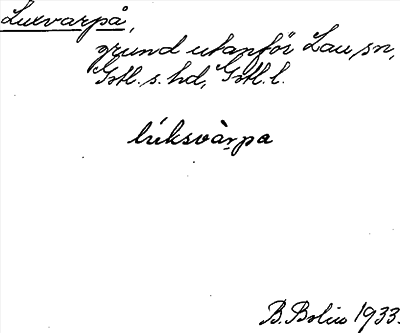 Luxvarpå,
grund utanför Lau sn,
Gotl. s. hd, Gotl. l.
lúksvàrpa
B. Bolin 1933.